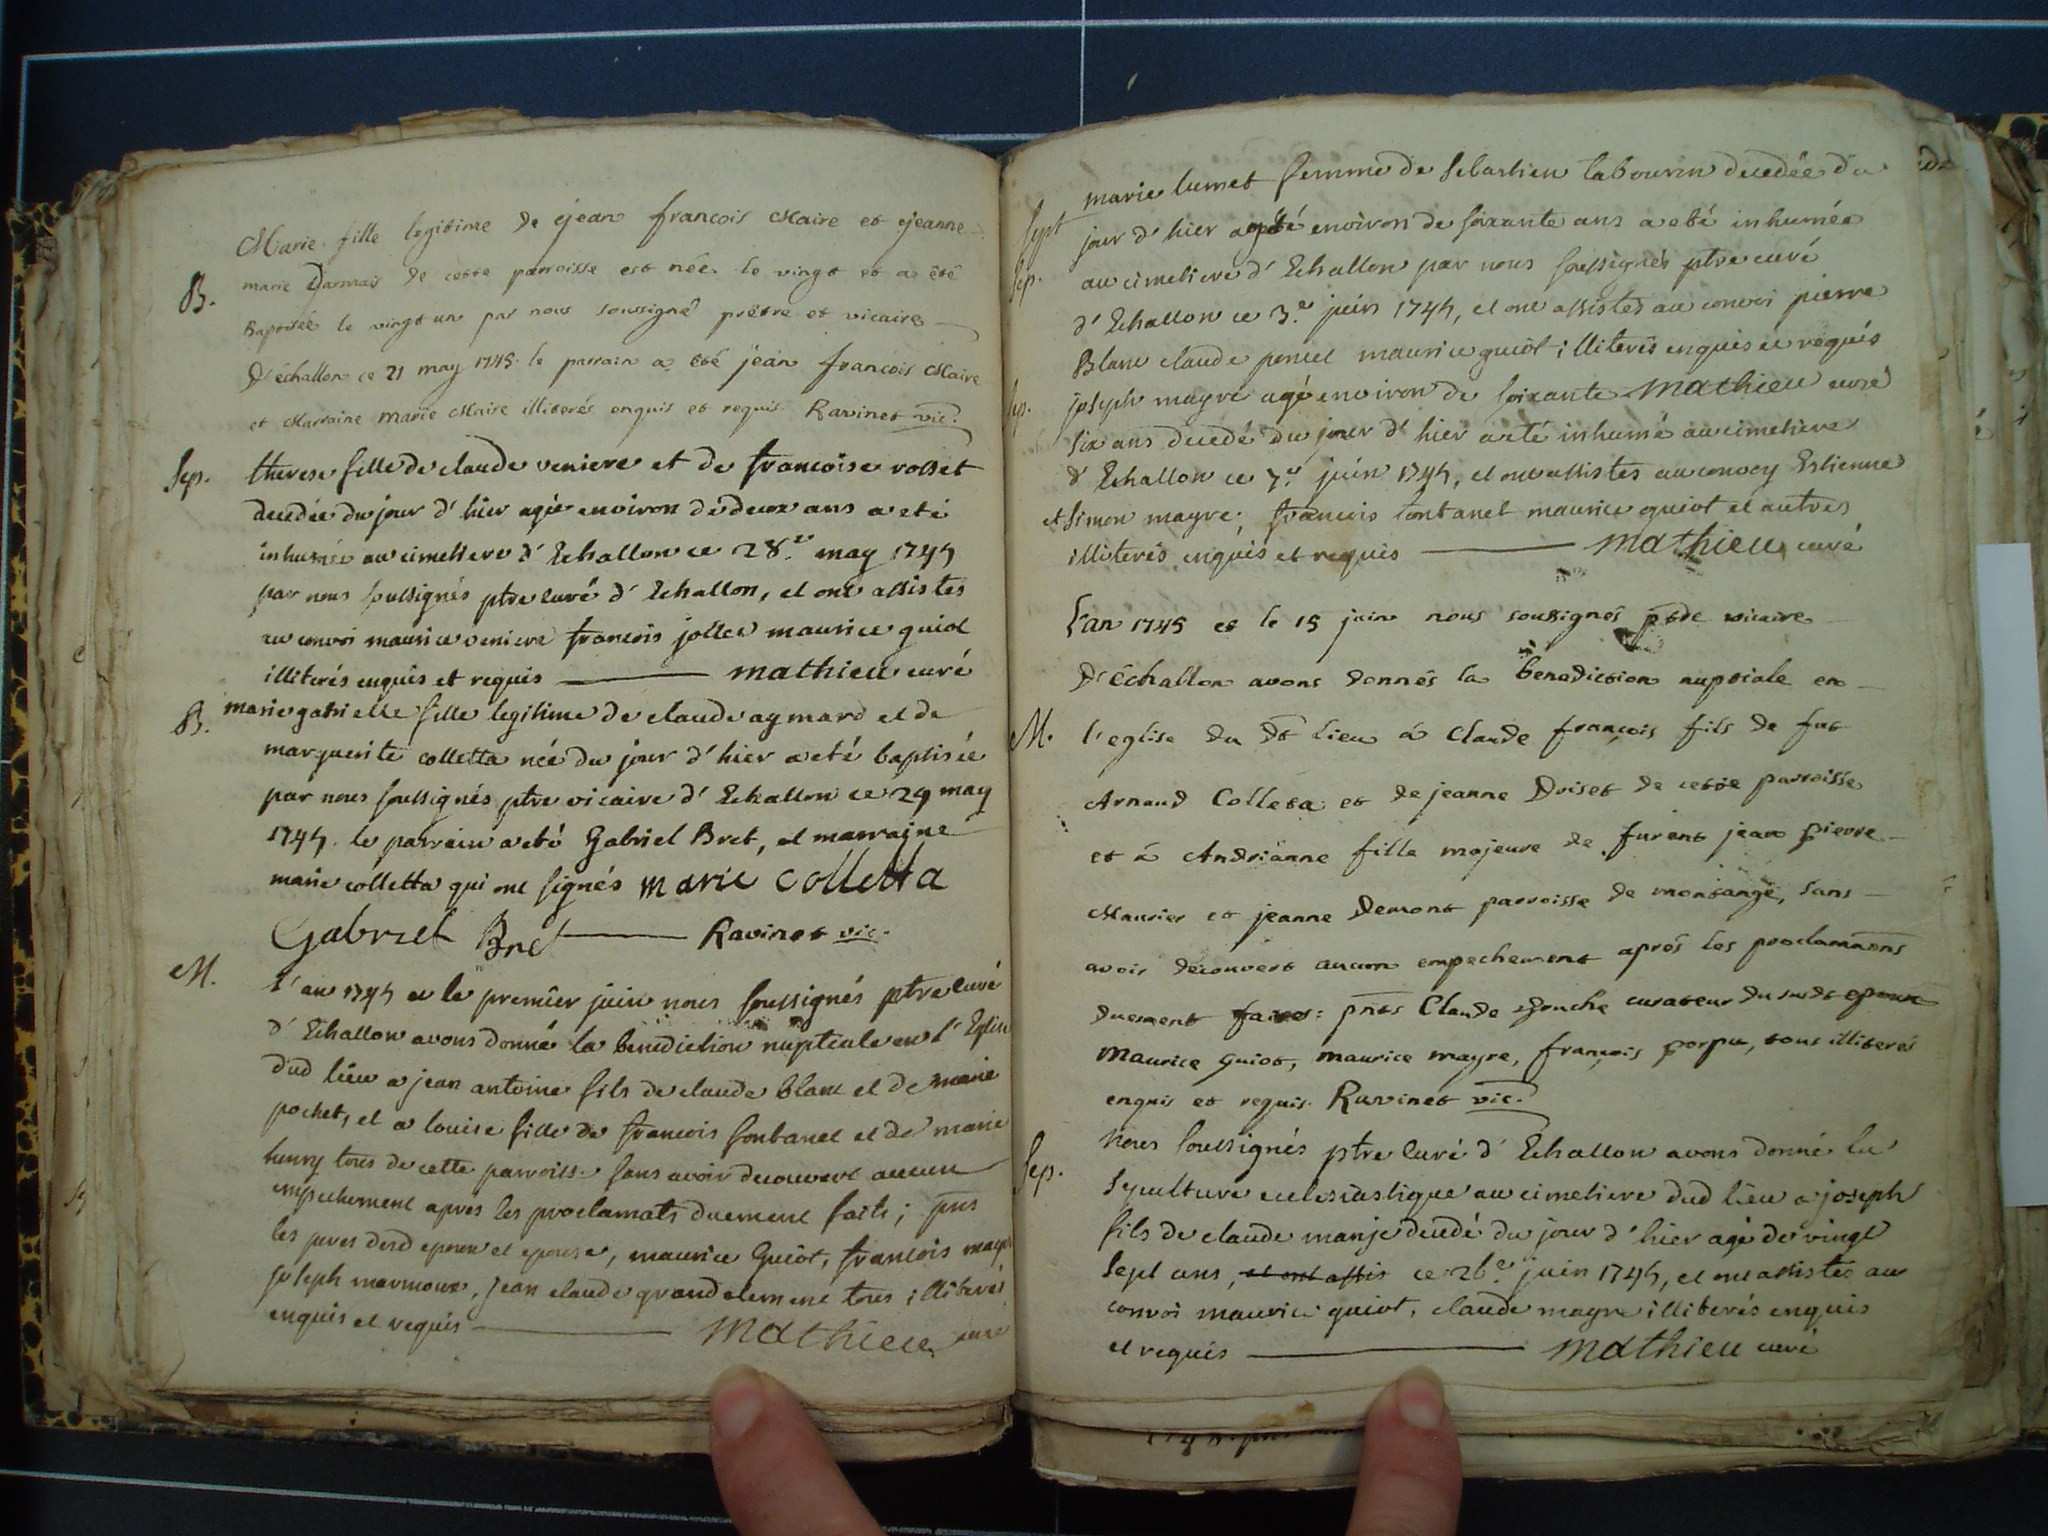 Marie fille legitime de jean françois Maire et jeanne
B.
marie Darmais de cette parroisse est née le vingt et a êté
Baptisée le vingt un par nous soussigné prêtre et vicaire
D'échallon ce 21 may 1745. le parrain a été jean françois Maire
et Marraine Marie Maire illiterés enquis et requis. Ravinet vic.
Sep. therese fille de claude veniere et de francoise rosset
decedée du jour d'hier agée environ de deux ans a eté
inhumée au cimetiere d'Echallon ce 28.e may 1745
par nous soussignés ptre curé d'Echallon, et ont assistes
au convoi maurice veniere francois maurice guiot
illiterés enquis et requis mathieu curé
B. marie gabrielle fille legitime de claude aymard et de
marguerite colletta née du jour d'hier a eté baptisée
par nous soussignés ptre vicaire d'Echallon ce 29 may
1745. le parrain a eté Gabriel Bret, et marraine
marie colletta qui ont signés marie colletta
Gabriel Bret Ravinet vic.
M. l'an 1745 et le premier juin nous soussignés ptre curé
d'Echallon avons donné la benediction nuptiale en l'Eglise
dud lieu a jean antoine fils de claude blanc et de marie
pochet, et a louise fille de francois fontanel et de marie
henry tous de cette parroisse sans avoir decouvert aucun
empechement apres les proclamats duement faits; pns
les peres desd epoux et epouse, maurice Guiot, francois mayre
joseph marmoux, jean claude grandclement tous illiterés
enquis et requis mathieu curé
marie lumet femme de sebastien tabourin decedée du
Sept jour d'hier agée environ de soixante ans a eté inhumée
Sep. au cimetiere d'Echallon par nous soussignés ptre curé
d'Echallon ce 3.e juin 1745, et ont assistes au convoi pierre
Blanc claude poncet maurice guiot illiterés enquis et requis
Sep. joseph mayre agé environ de soixante mathieu curé
six ans decedé du jour d'hier a eté inhumé au cimetiere
d'Echallon ce 7.e juin 1745, et ont assistes au convoy Estienne
et simon mayre, francois fontanel maurice guiot et autres
illiterés enquis et requis mathieu curé
L'an 1745 et le 15 juin nous soussignés vicaire
D'échallon avons donnés la benediction nuptiale en
M. l'eglise du dt lieu à Claude françois fils de fut
Arnaud Colleta et de jeanne Poiset de cette parroisse
et à Andrianne fille majeure de furent jean pierre
Maurier et jeanne Demont parroisse de montange, sans
avoir découvert aucun empechement aprés les proclamaõns
duement faites: pnts Claude curateur du sudt epoux
Maurice guiot, maurice mayre, françois porpu, tous illiterés
enquis et requis. Ravinet vic.
nous soussignés ptre curé d'Echallon avons donné la
Sep. sepulture ecclesiastique au cimetiere dud lieu a joseph
fils de claude manje decedé du jour d'hier agé de vingt
sept ans, et ont assis ce 26.e juin 1745, et ont assistes au
convoi maurice guiot, claude mayre illiterés enquis
et requis mathieu curé